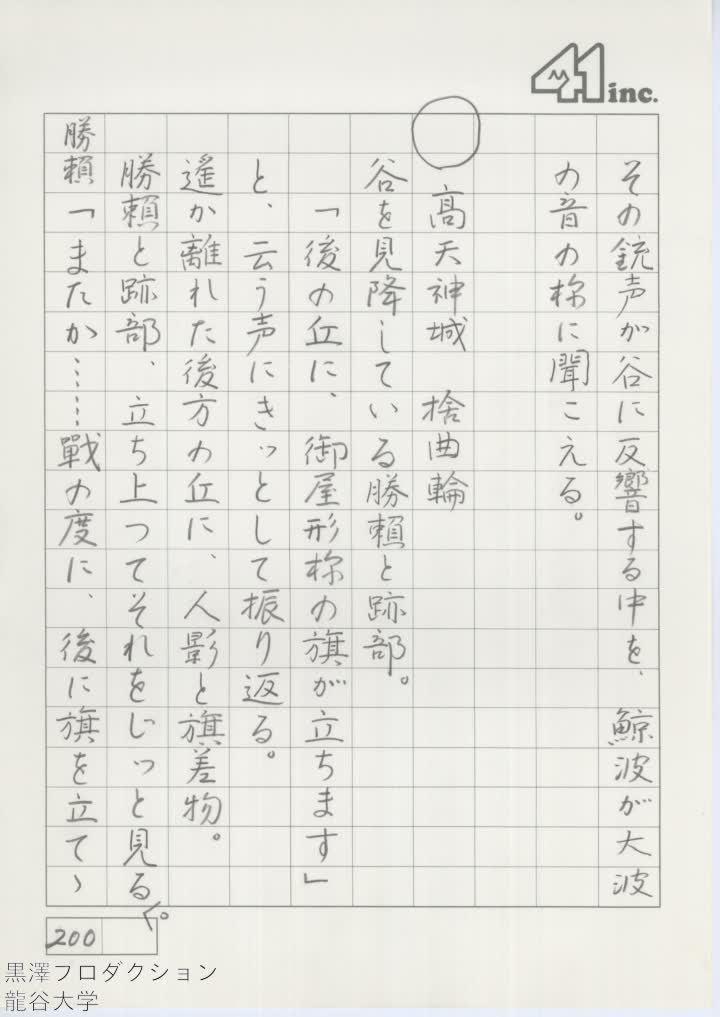 41 inc.
その銃声が谷に反響する中を、鯨波が大波
の音の様に聞こえる。
○ 髙天神城 捨曲輪
谷を見降している勝頼と跡部。
「後の丘に、御屋形様の旗が立ちます」
と、云う声にきっとして振り返る。
遙か離れた後方の丘に、人影と旗差物。
勝頼と跡部、立ち上つてそれをじっと見る。
勝頼「またか……戰の度に、後に旗を立てゝ
200
黒澤プロダクション
龍谷大学